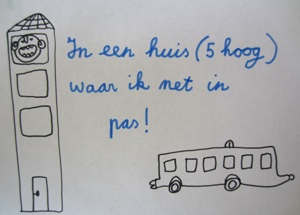 In een huis (5 hoog)
waar ik net in
pas!